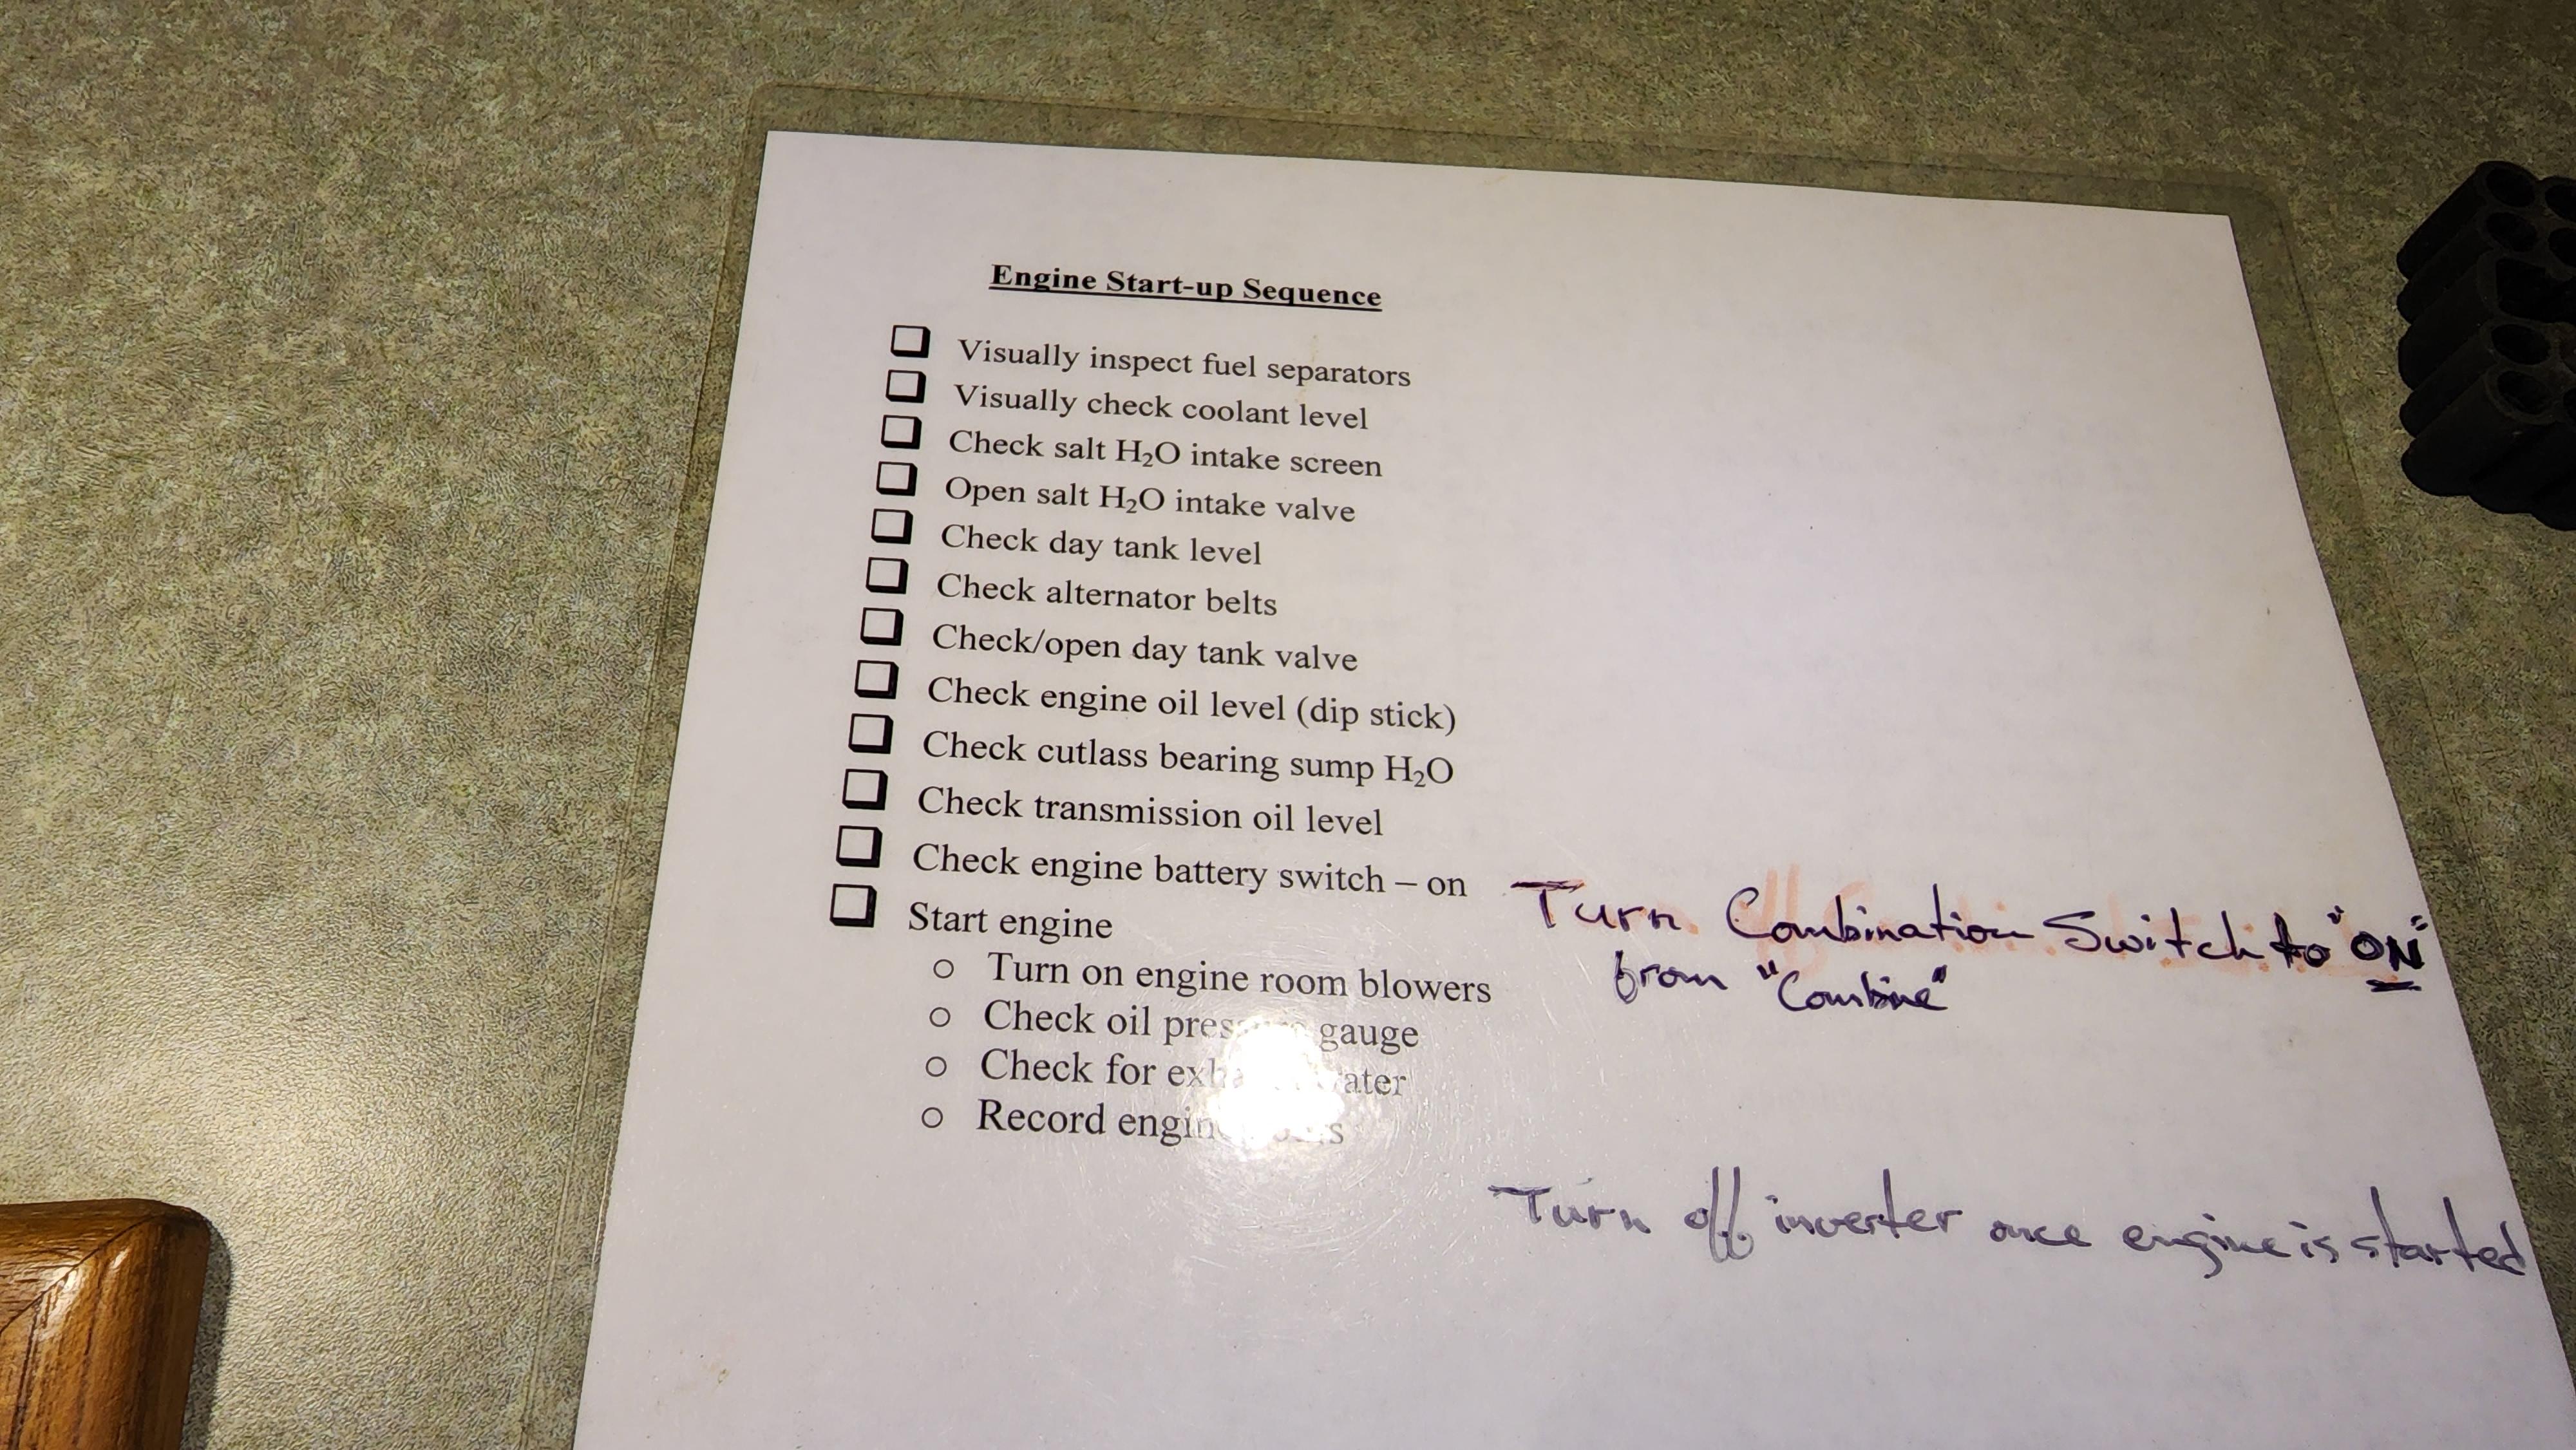 Engine Start-up Sequence
Visually inspect fuel separators
Visually check coolant level
Check salt H₂O intake screen
Open salt H₂O intake valve
Check day tank level
Check alternator belts
Check/open day tank valve
Check engine oil level (dip stick)
Check cutlass bearing sump H₂O
Check transmission oil level
Check engine battery switch – on
Turn Combination Switch to "ON"
from "Combine"
Start engine
Turn on engine room blowers
Check oil pressure gauge
Check for exhaust water
Record engine hours
Turn off inverter once engine is started